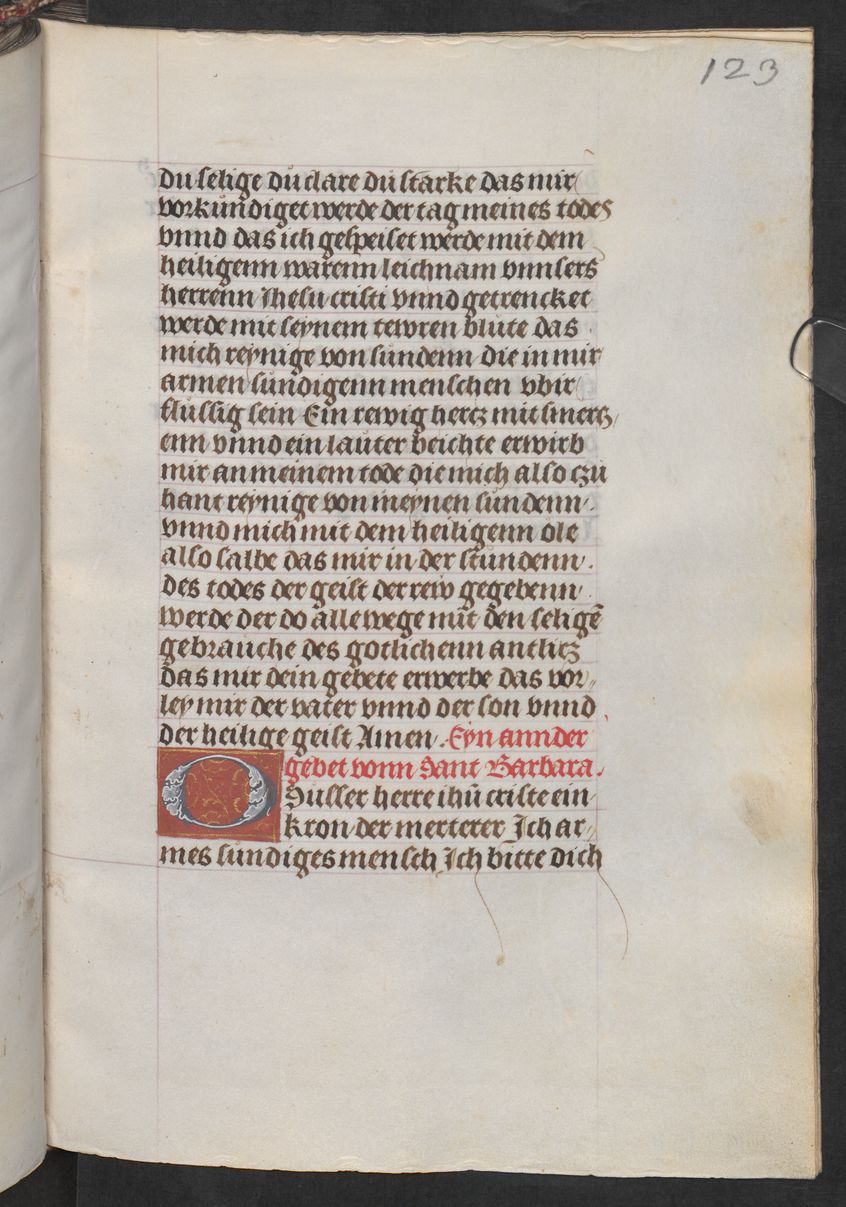 123
du selige du clare du starke das mir
vorkundiget werde der tag meines todes
vnnd das ich gespeiset werde mit dem
heiligenn warenn leichnam vnnsers
herrenn Jhesu cristi vnnd getrencket
werde mit seynem tewren blute das
mich reynige von sundenn die in mir
armen sundigenn menschen vbir
flussig sein Ein rewig hercz mit smercz
enn vnnd ein lauter beichte erwirb
mir an meinem tode die mich also czu
hant reynige von meynen sundenn
vnnd mich mit dem heiligenn ole
also salbe das mir in der stundenn.
des todes der geist der rew gegebenn
werde der do alle wege mit den seligē
gebrauche des gotlichenn antlicz
das mir dein gebete erwerbe das vor,,
ley mir der vater vnnd der son vnnd
der heilige geist Amen. Eyn annder
gebet vonn Sant Barbara.
O Susser herre ihū criste ein
kron der merterer Ich ar,,
mes sundiges mensch Ich bitte dich